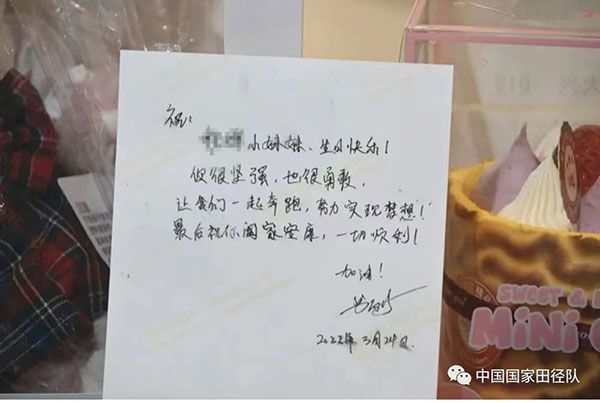 祝:
小妹妹、生日快乐!
你很坚强,也很勇敢,
让我们一起奔跑,努力实现梦想!
最后祝你阖家安康,一切顺利!
加油!
2022年3月24日.
SWEET &
MiNi
中国国家田径队